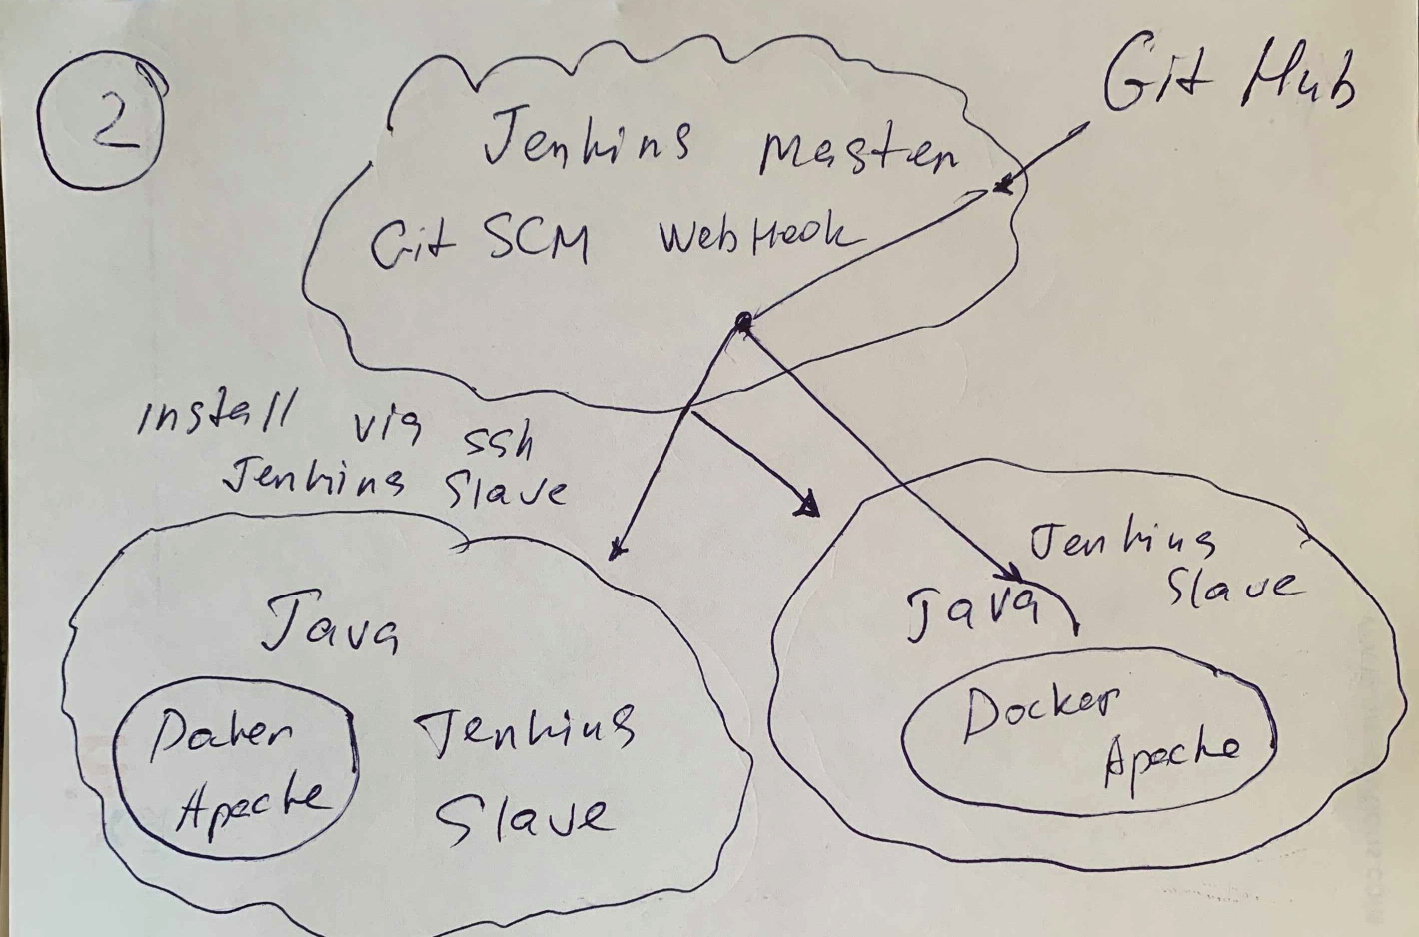 2
Git Hub
Jenkins master
Git SCM WebHook
install via ssh
Jenkins Slave
Java
Docker
Apache
Jenkins
Slave
Jenkins
Slave
Java
Docker
Apache